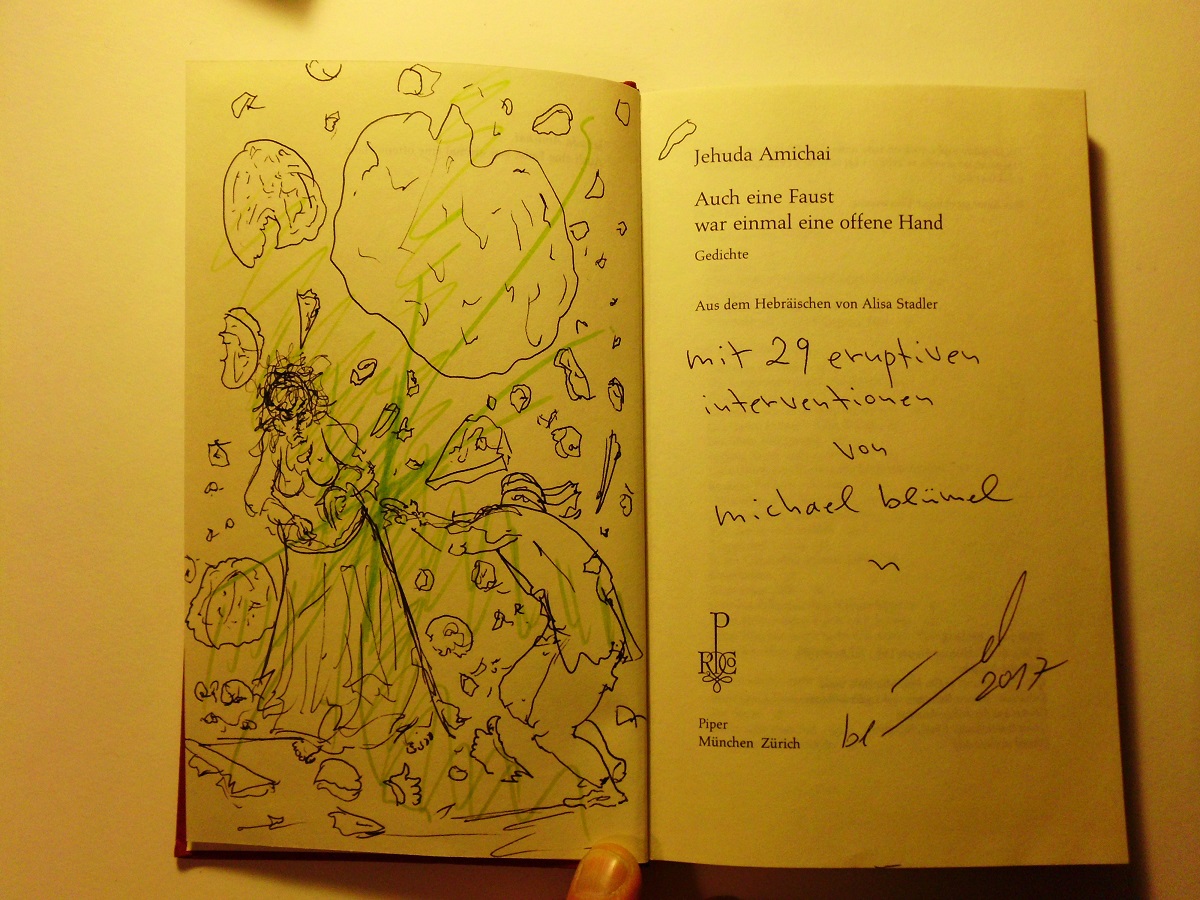 Jehuda Amichai
Auch eine Faust
war einmal eine offene Hand
Gedichte
Aus dem Hebräischen von Alisa Stadler
mit 29 eruptiven
interventionen
von
michael blümel
2017
Piper
München Zürich